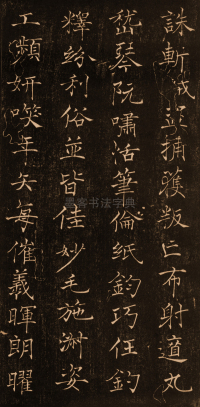 誅斬賊盜捕獲叛亡布射遼丸
嵇琴阮嘯恬筆倫紙鈞巧任釣
釋紛利俗並皆佳妙毛施淑姿
工頻妍咲年矢每催羲暉朗曜
书法字典